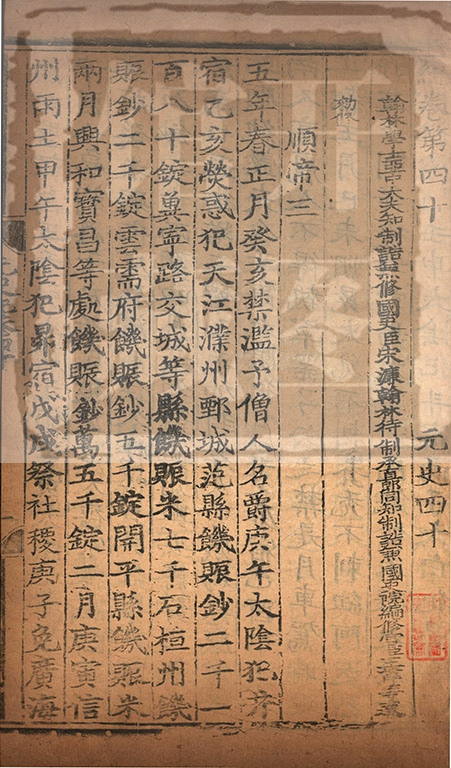 卷第四十 元史四十
翰林學士亞中大夫知制誥兼修國史臣宋濂翰林待制承直郎同知制誥兼國史院編修官臣王禕等奉
順帝三
五年春正月癸亥禁濫予僧人名爵庚午太陰犯井
宿乙亥熒惑犯天江濮州鄄城范縣饑賑鈔二千一
百八十錠冀寧路交城等縣饑賑米七千石桓州饑
賑鈔二千錠雲需府饑賑鈔五千錠開平縣饑賑米
兩月興和寶昌等處饑賑鈔萬五千錠二月庚寅信
州雨土甲午太陰犯昴宿戊戌祭社稷庚子免廣海